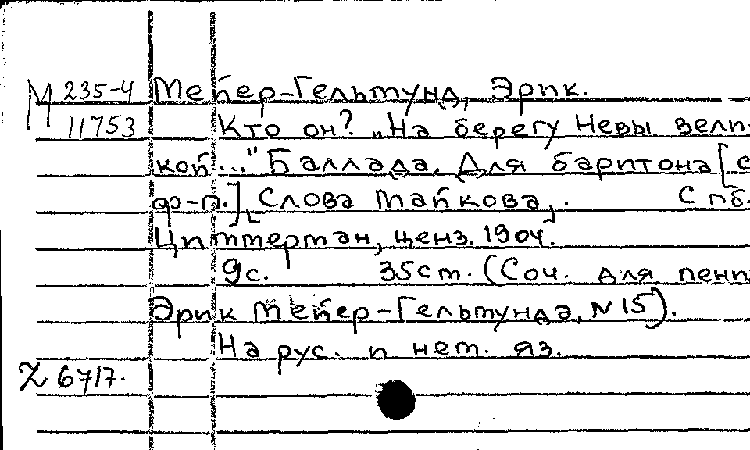 М 235-4 Мейер-Гельмунд, Эрик.
11753 Кто он? „На берегу Невы вели-
кой..." Баллада. Для баритона [с
ф-п.] [Слова Майкова]. Спб.
Циммерман, ценз. 1904.
9с. 35см. (Соч. для пения
Эрик Мейер-Гельмунда, N 15).
На рус. и нем. яз.
Z 6717.